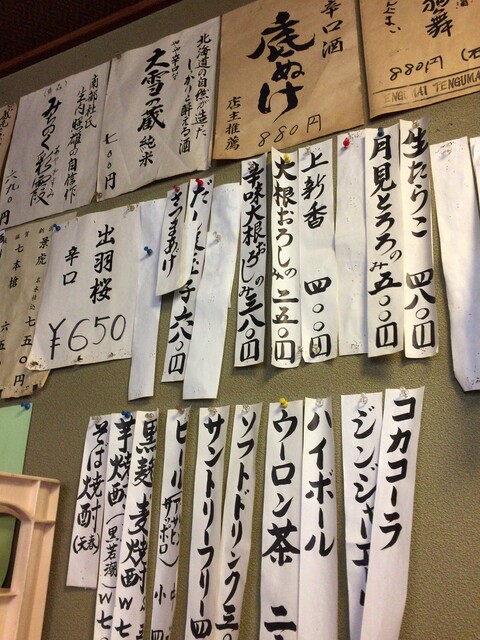 歌舞
880円
TENGUMAI TENGUMA
辛口酒
底ぬけ
店主推薦
880円
北海道の自然が造った
しっかりと酔える酒
やや辛口
大雪の蔵 純米
七〇〇円
南部杜氏
生内照雄の自信作
みちのく彩霞
六九〇円
生たらこ 四八〇円
月見とろろのみ 五〇〇円
上新香 四〇〇円
大根おろしのみ 二五〇円
辛味大根おろしのみ 三八〇円
六八〇円
さつまあげ
出羽桜
辛口
¥650
景虎 七五〇円
七本槍 六五
コカコーラ
ジンジャーエール
ハイボール
ウーロン茶 二
ソフトドリンク 三
サントリーフリー 四
ビール(アサヒ サッポロ) 中 小
黒麹 麦焼酎
芋焼酎(黒若潮) W七
そば焼酎(天春)